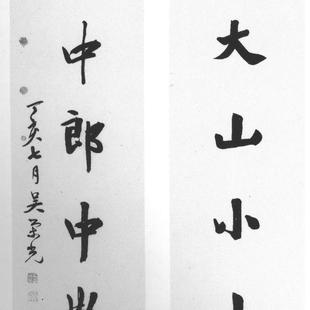 大山小
中郎中
丁亥七月吴荣光